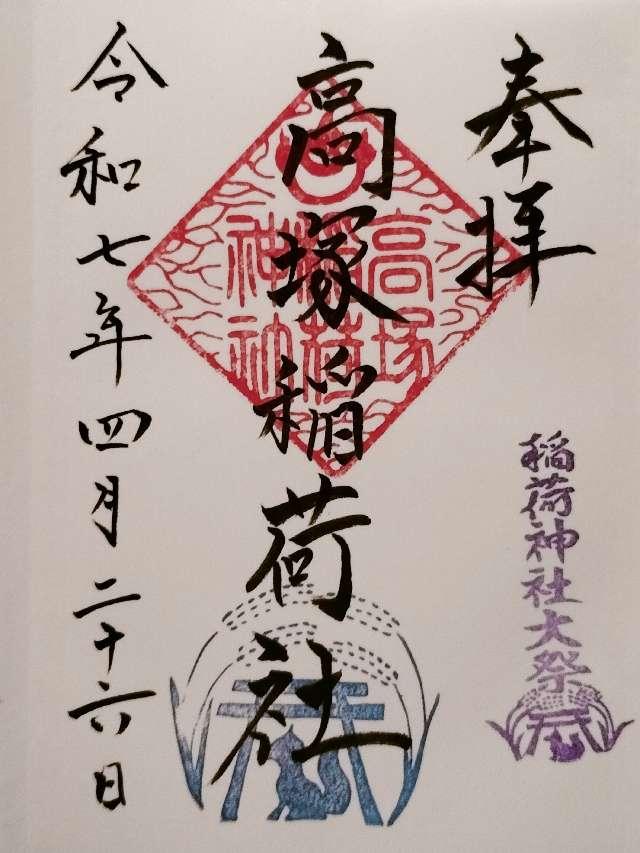 奉拝
稲荷神社大祭
高塚稲荷社
高塚
稲荷
神社
令和七年四月二十六日